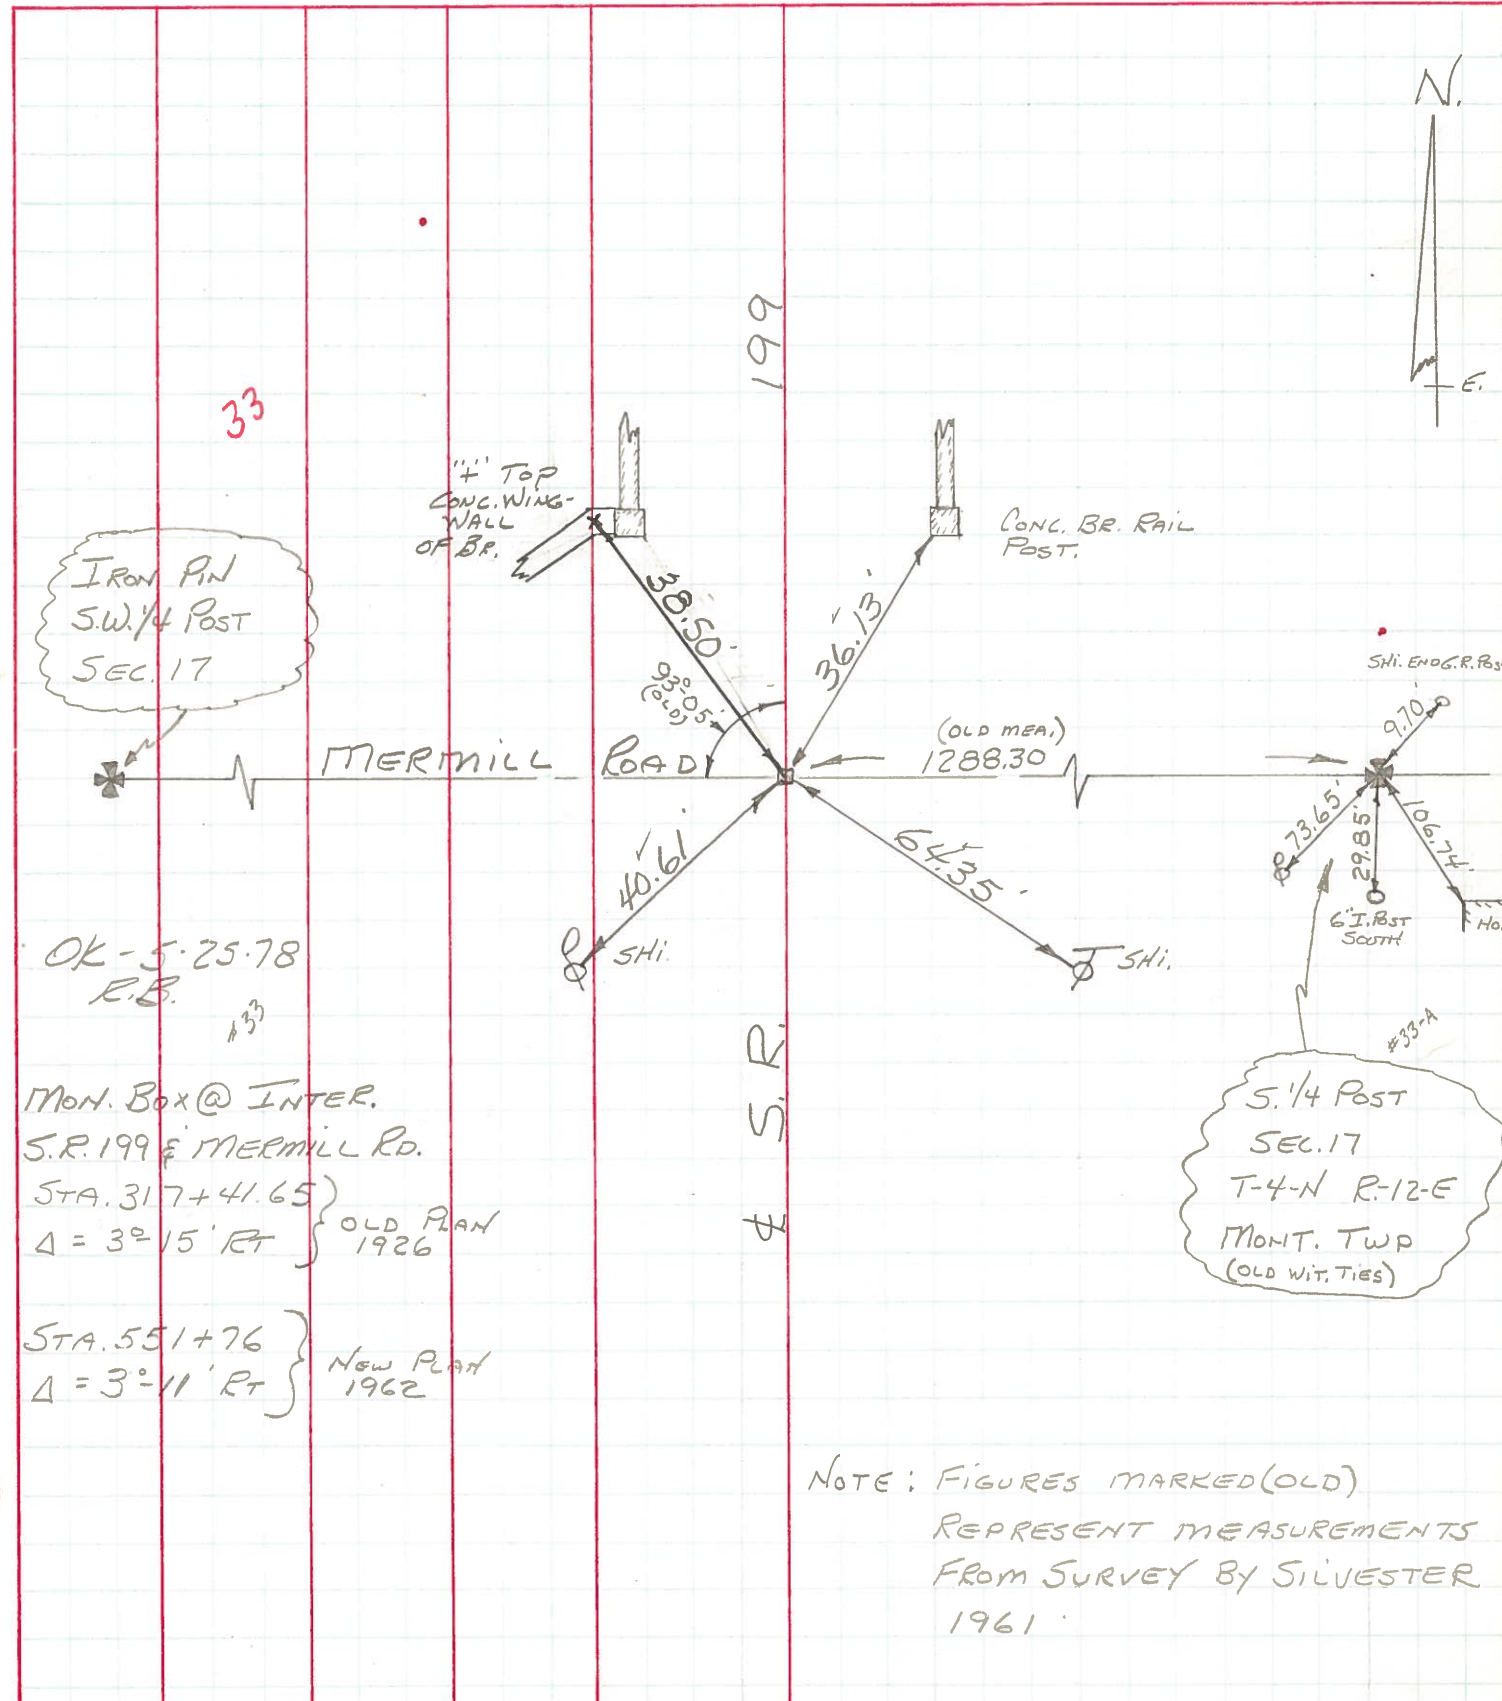 N.
E.
199
33
"+" TOP
CONC. WING-
WALL
OF BR.
CONC. BR. RAIL
POST.
IRON PIN
S.W. 1/4 POST
SEC. 17
38.50'
36.13'
93°-05'
(OLD)
SHI. END G.R. POS
9.70
MERMILL ROAD
(OLD MEA.)
1288.30
40.61'
64.35'
73.65'
29.85'
106.74'
6" I. POST
SOUTH
HO
SHI.
SHI.
OK - 5-25-78
R.B.
#33
#33-A
MON. BOX @ INTER.
S.R. 199 & MERMILL RD.
STA. 317+41.65
Δ = 3°-15' RT
OLD PLAN
1926
STA. 551+76
Δ = 3°-11' RT
NEW PLAN
1962
℄ S. R.
S. 1/4 POST
SEC. 17
T-4-N R-12-E
MONT. TWP
(OLD WIT. TIES)
NOTE: FIGURES MARKED (OLD)
REPRESENT MEASUREMENTS
FROM SURVEY BY SILVESTER
1961